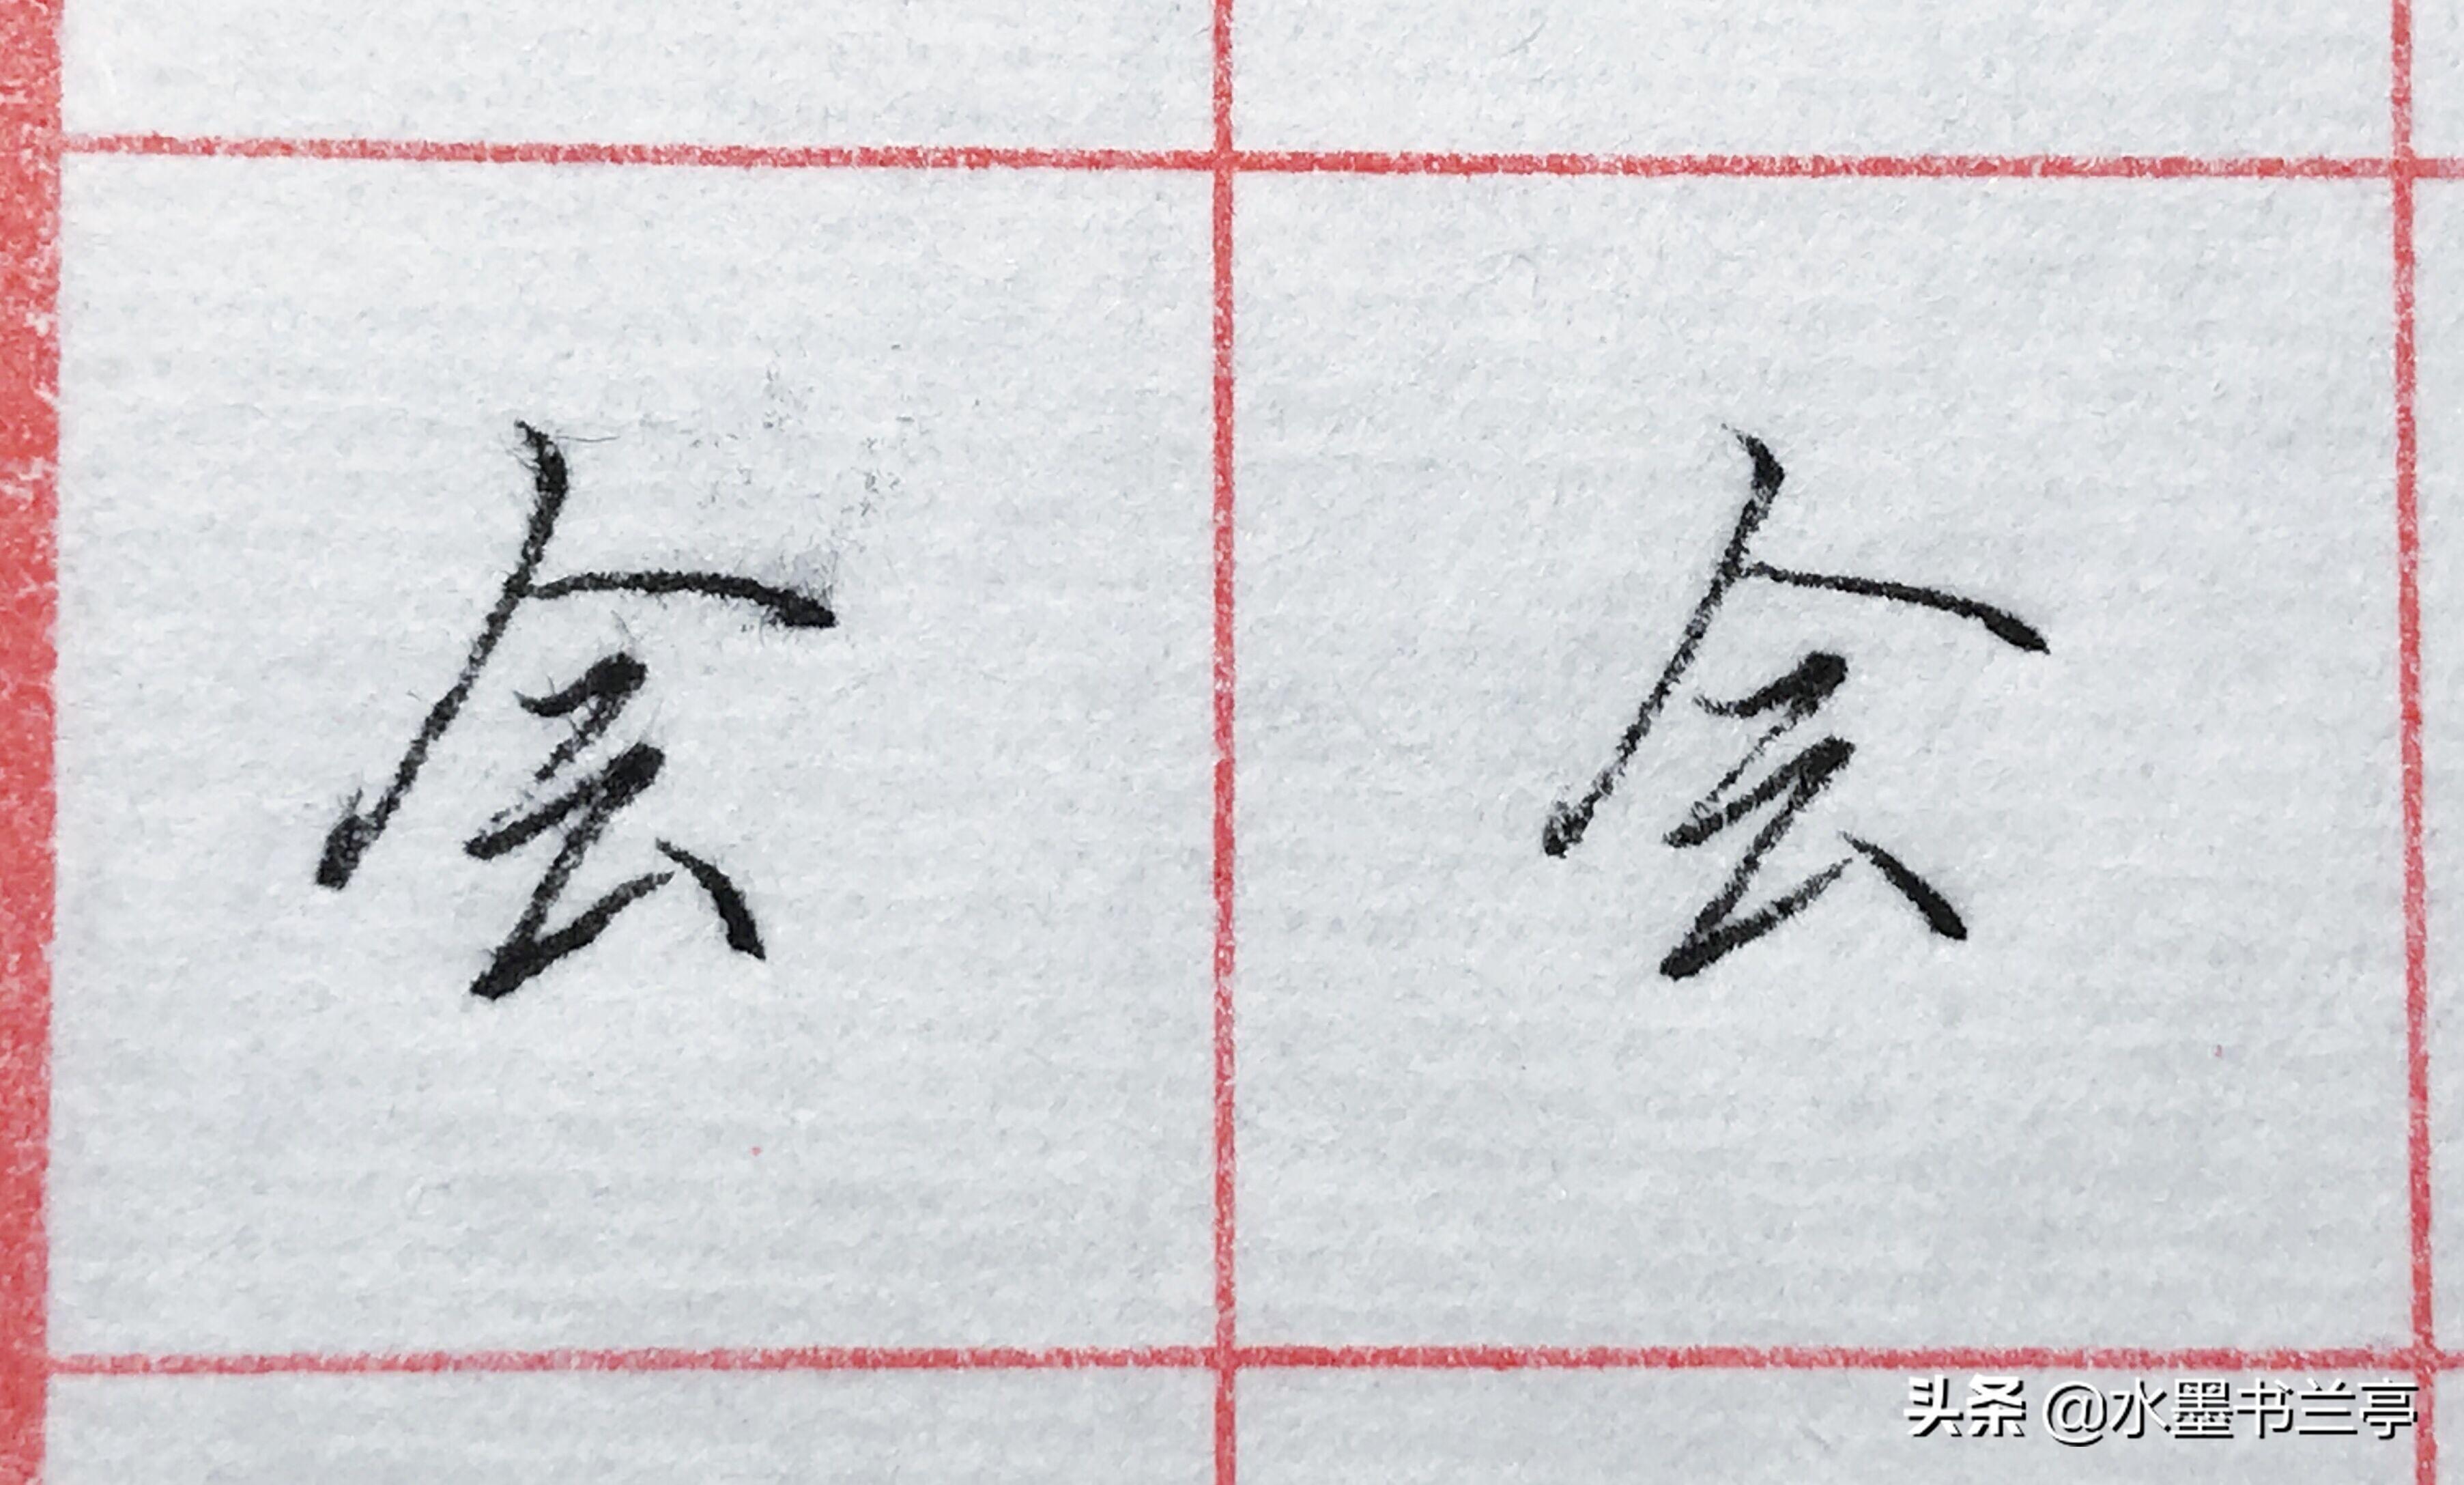 会 会
头条 @水墨书兰亭